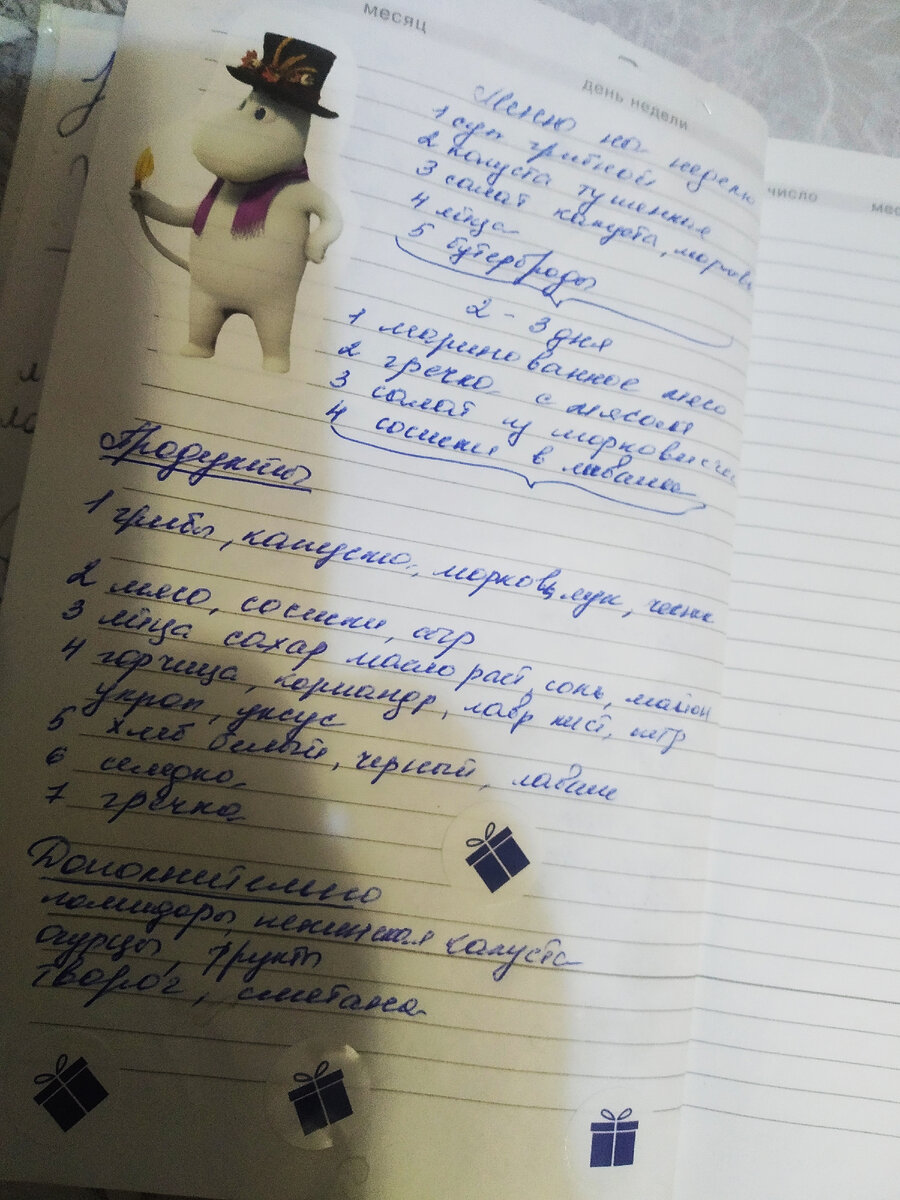 месяц
день недели
число
мес
Меню на неделю
1 суп грибной
2 капуста тушенная
3 салат капуста, морковь
4 яйца
5 бутерброды
2 - 3 дня
1 маринованное мясо
2 гречка с мясом
3 салат из моркови
4 сосиски в лаваше
Продукты
1 грибы, капуста, морковь, лук, чесн
2 мясо, сосиски, сыр
3 яйца сахар масло раст, соль, майон
4 горчица, кориандр, лавр лист,
укроп, уксус
5 хлеб белый, черный, лаваш
6 селедка,
7 гречка
Дополнительно
помидоры, пекинская капуста
огурцы, фрукты
творог, сметана